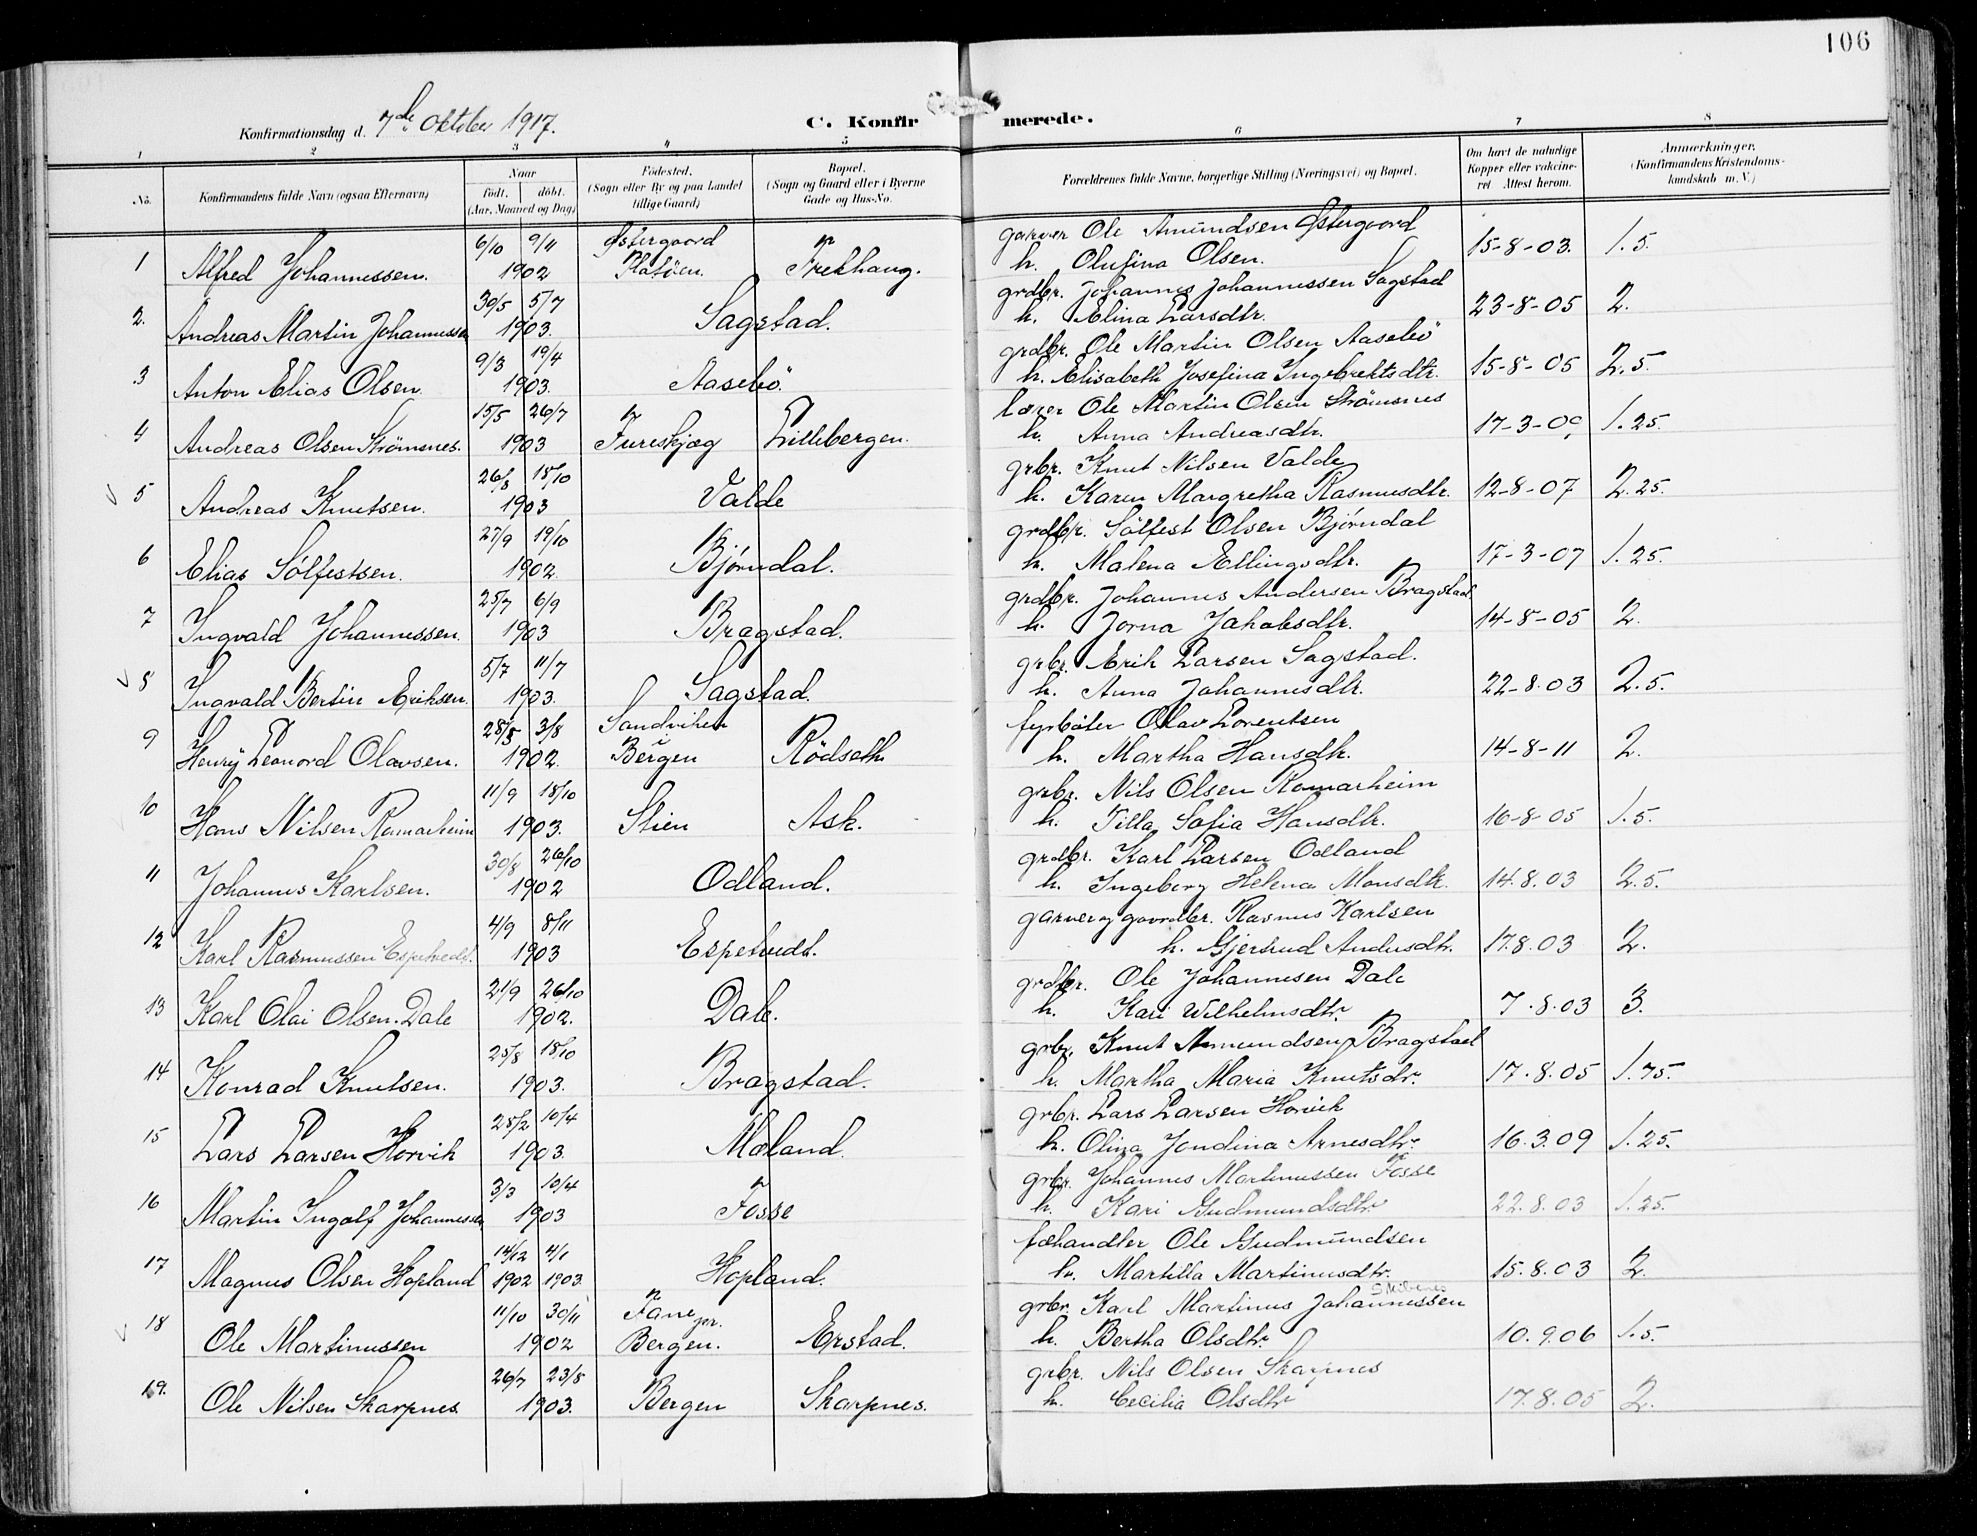 106
Konfirmationsdag d. 7de Oktober 1917.
C. Konfirmerede.
1 2 3 4 5 6 7 8
No.
Konfirmandens fulde Navn (ogsaa Efternavn)
Naar
født. døbt.
(Aar, Maaned og Dag)
Fødested.
(Sogn eller By og paa Landet
tillige Gaard)
Bopæl.
(Sogn og Gaard eller i Byerne
Gade og Hus-No.
Forældrenes fulde Navne, borgerlige Stilling (Næringsvei) og Bopæl.
Om havt de naturlige
Kopper eller vakcine-
ret Attest herom.
Anmærkninger,
(Konfirmandens Kristendoms-
kundskab m. V.)
1 Alfred Johannessen. 6/10 9/11 1902 Østergaard Frekhaug.
garver Ole Amundsen Østergaard
h. Olufina Olsen. 15-8-03. 1.5.
2. Andreas Martin Johannessen 30/5 5/7 1903. Sagstad.
grdbr. Johannes Johannessen Sagstad
h. Elina Larsdtr. 23-8-05 2.
3 Anton Elias Olsen. 9/3 19/4 1903. Aasebö.
grdbr. Ole Martin Olsen Aasebö
h. Elisabeth Josefina Ingebrektsdtr. 15-8-05 2.5.
4 Andreas Olsen Strömsnes. 15/5 26/7 1903 Fureskjæg Lillebergen.
lærer Ole Martin Olsen Strömsnes
h. Anna Andreasdtr. 17-3-09 1.25.
5 Andreas Knutsen. 26/8 18/10 1903 Valde
grbr. Knut Nilsen Valde
h. Karen Margretha Rasmusdtr. 12-8-07 2.25.
6 Elias Sölfestsen. 27/9 19/10 1902. Bjørndal.
grdbr. Sölfest Olsen Bjørndal
h. Malena Ellingsdtr. 17-3-07 1.25.
7 Ingvald Johannessen. 25/7 6/9 1903 Bragstad.
grdbr. Johannes Andersen Bragstad
h. Jorna Jakobsdtr. 14-8-05 2.
8 Ingvald Bertin Eriksen. 5/7 11/7 1903. Sagstad.
grbr. Erik Larsen Sagstad.
h. Anna Johannesdtr. 22-8.03 2.5.
9 Henrÿ Leonord Olavsen. 28/5 3/8 1902. Sandviken
i
Bergen Rödseth
fyrböter Olav Lorentsen
h. Martha Hansdtr. 14-8-11 2.
10 Hans Nilsen Romarheim 11/9 18/10 1903. Stien Ask.
grbr. Nils Olsen Romarheim
h. Tilla Sofia Hansdtr. 16-8-05 1.5.
11 Johannes Karlsen. 30/8 26/10 1902 Odland.
grdbr. Karl Larsen Odland
h. Ingeborg Helena Monsdtr. 14.8.03 2.5.
12 Karl Rasmussen Espetvedt. 4/9 8/11 1903 Espetvedt.
garver og gaardbr. Rasmus Karlsen
h. Gjertrud Andersdtr. 17.8.03 2.
13 Karl Olai Olsen. Dale 21/9 26/10 1902. Dale.
grdbr. Ole Johannesen Dale
h. Kari Wilhelmsdtr. 7.8.03 3.
14 Konrad Knutsen. 25/8 18/10 1903. Bragstad.
grbr. Knut Amundsen Bragstad
h. Martha Maria Knutsdtr. 17.8.05 1.75.
15 Lars Larsen Horvik 25/2 10/4 1903. Mæland.
grbr. Lars Larsen Horvik
h. Olina Jondina Arnesdtr. 16.3.09 1.25.
16 Martin Ingolf Johannessen 3/3 10/4 1903 Fosse
grbr. Johannes Martinussen Fosse
h. Kari Gudmundsdtr 22.8.03 1.25.
17 Magnus Olsen Hopland 14/12 4/1 1902 1903. Hopland.
fæhandler Ole Gudmundsen
h. Martilla Martinusdtr. 15.8.03 2.
18 Ole Martinussen 11/10 30/11 1902 Fane pr.
Bergen. Erstad.
grbr. Karl Martinus Johannessen
h. Bertha Olsdtr. 10.9.06 1.5.
19. Ole Nilsen Skarpnes 26/7 23/8 1903. Bergen Skarpnes.
grbr. Nils Olsen Skarpnes
h. Cecilia Olsdtr 17.8.05 2.